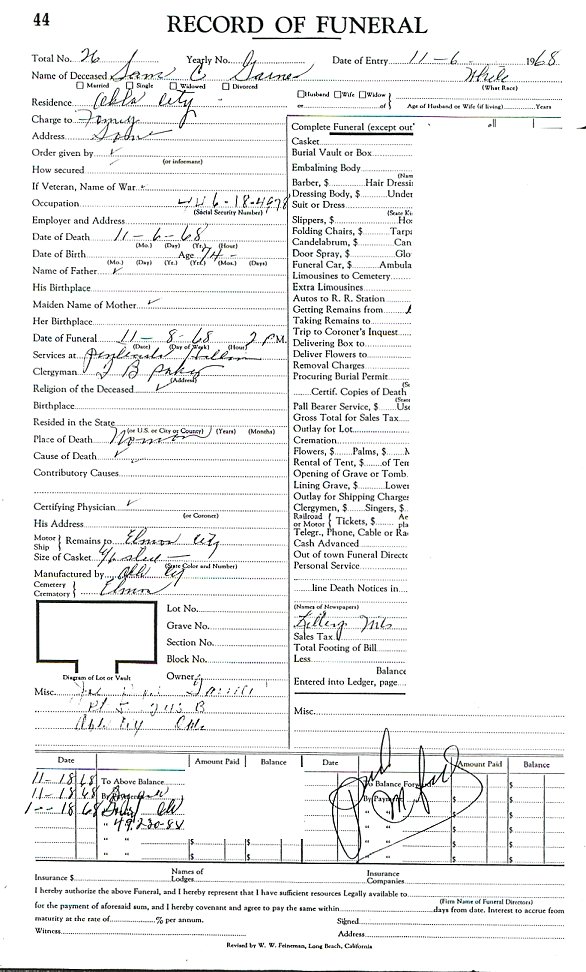 44
RECORD OF FUNERAL
Total No. 26 Yearly No. Date of Entry 11-6- 1968
Name of Deceased Sam C White
(What Race)
Married Single Widowed Divorced
Husband Wife Widow
or of Age of Husband or Wife (if living) Years
Residence Okla City
Charge to Family
Address Same
Order given by ✓
(or informant)
How secured
If Veteran, Name of War
Occupation 6-18-4978
(Social Security Number)
Employer and Address
Date of Death 11-6-68
(Mo.) (Day) (Yr.) (Hour)
Date of Birth Age 74-
(Mo.) (Day) (Yr.) (Yrs.) (Mos.) (Days)
Name of Father ✓
His Birthplace
Maiden Name of Mother ✓
Her Birthplace
Date of Funeral 11-8-68 2 P M.
(Date) (Day of Week) (Hour)
Services at
Clergyman J B
(Address)
Religion of the Deceased ✓
Birthplace
Resided in the State
(or U.S. or City or County) (Years) (Months)
Place of Death Norman
Cause of Death ✓
Contributory Causes
Certifying Physician ✓
(or Coroner)
His Address
Motor
Ship Remains to Elmore City
Size of Casket 6/6
(State Color and Number)
Manufactured by Okla City
Cemetery
Crematory Elmore
Lot No.
Grave No.
Section No.
Block No.
Owner
Diagram of Lot or Vault
Misc.
Complete Funeral (except out all
Casket
Burial Vault or Box
Embalming Body
(Nam
Barber, $ Hair Dressi
Dressing Body, $ Under
Suit or Dress
(State Ki
Slippers, $ Ho
Folding Chairs, $ Tarp
Candelabrum, $ Can
Door Spray, $ Glo
Funeral Car, $ Ambula
Limousines to Cemetery
Extra Limousines
Autos to R. R. Station
Getting Remains from
Taking Remains to
Trip to Coroner's Inquest
Delivering Box to
Deliver Flowers to
Removal Charges
Procuring Burial Permit
Certif. Copies of Death
Pall Bearer Service, $ Use
Gross Total for Sales Tax
Outlay for Lot
Cremation
Flowers, $ Palms, $
Rental of Tent, $ of Ten
Opening of Grave or Tomb
Lining Grave, $ Lower
Outlay for Shipping Charges
Clergymen, $ Singers, $
Railroad
or Motor Tickets, $ pla
Telegr., Phone, Cable or Ra
Cash Advanced
Out of town Funeral Directo
Personal Service
line Death Notices in
(Names of Newspapers)
Sales Tax
Total Footing of Bill
Less
Balance
Entered into Ledger, page
Misc.
Date Amount Paid Balance Date Amount Paid Balance
11-18 68 To Above Balance $ $ To Balance Forward $ $
11-18 68 By Payment By Payment $ $
18 68
" 49,230-84
Insurance $ Names of Lodges Insurance Companies
I hereby authorize the above Funeral, and I hereby represent that I have sufficient resources Legally available to
(Firm Name of Funeral Directors)
for the payment of aforesaid sum, and I hereby covenant and agree to pay the same within days from date. Interest to accrue from
maturity at the rate of % per annum. Signed
Witness Address
Revised by W. W. Feineman, Long Beach, California